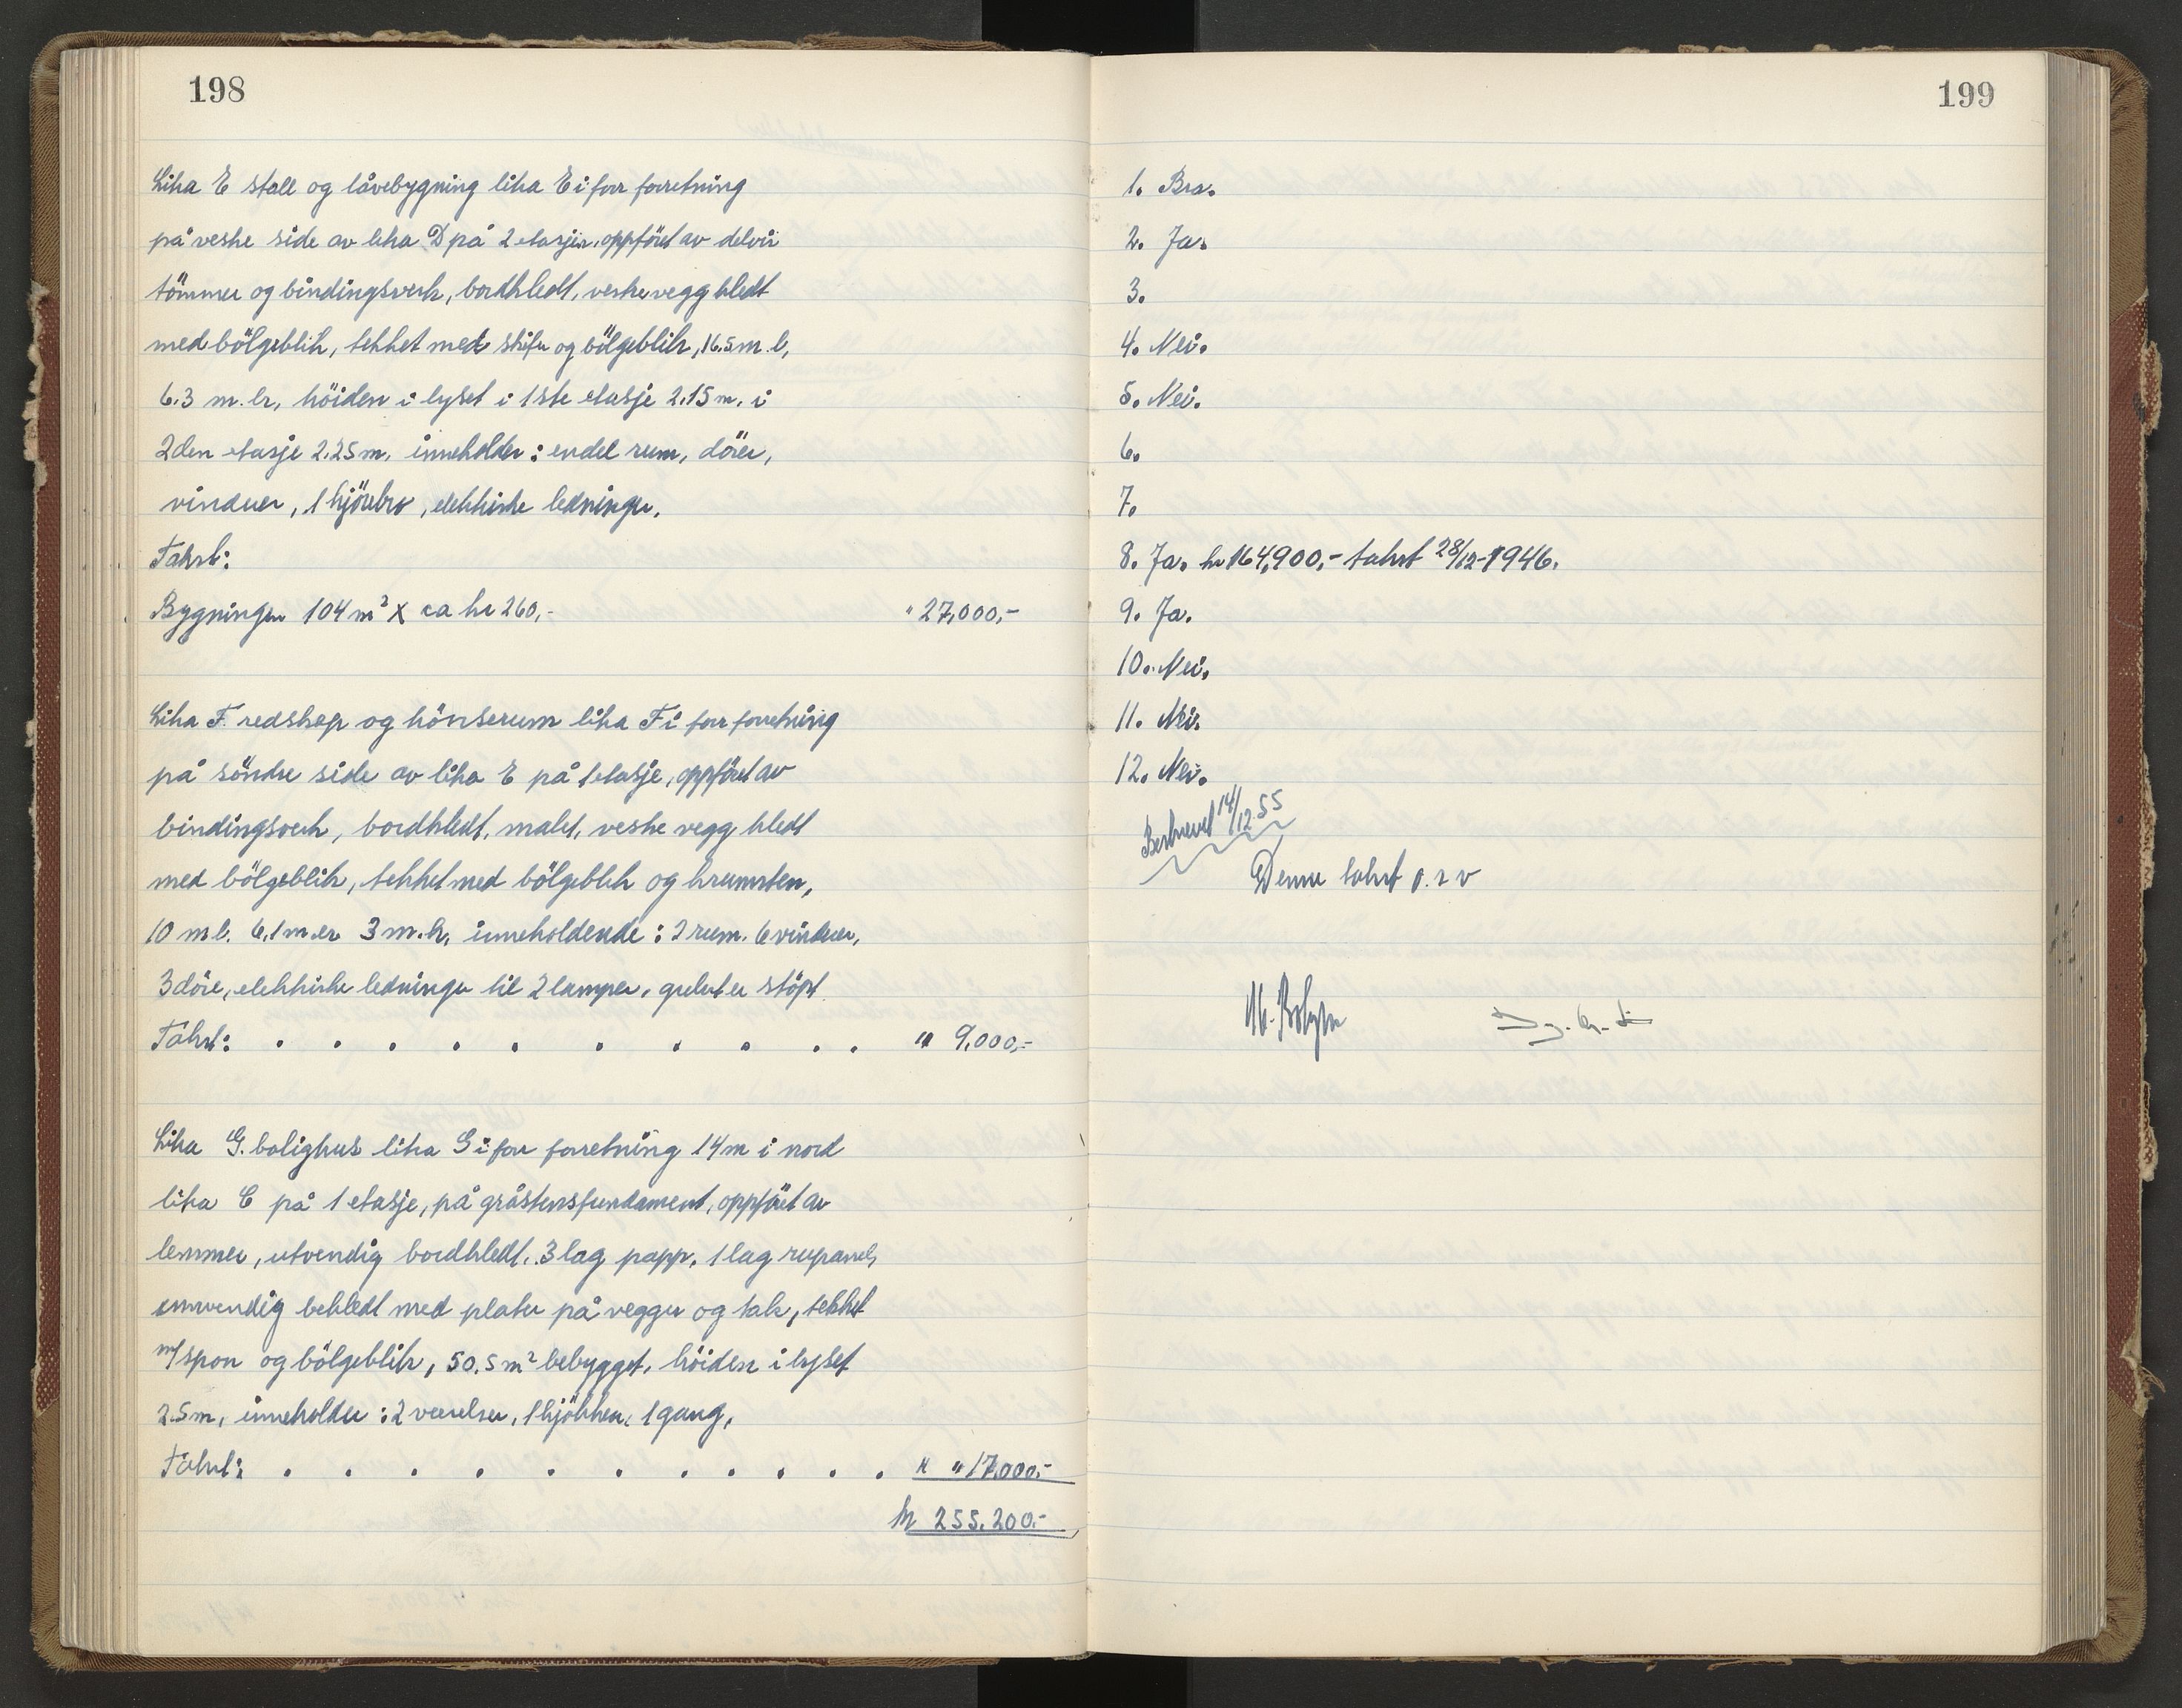 198
Litra E stall og låvebygning litra E i forr forretning
på vestre side av litra D på 2 etasjer, oppført av delvis
tömmer og bindingsverk, bordkledt, vestre vegg kledt
med bölgeblik, tekket med skifer og bölgeblik, 16.5 m. l,
6.3 m. br, höiden i lyset i 1ste etasje 2.15 m. i
2den etasje 2.25 m. inneholder: endel rum, dörer,
vinduer, 1 kjörebro, elektriske ledninger.
Takst:
Bygningen 104 m² x ca kr 260,- " 27,000,-
Litra F. redskap og hönserum litra F i forr forretning
på söndre side av litra E på 1 etasje, oppfört av
bindingsverk, bordkledt, malet, vestre vegg kledt
med bölgeblik, tekket med bölgeblik og krumsten,
10 m l. 6,1 m. br 3 m. h, inneholdende: 2 rum. 6 vinduer,
3 döre, elektriske ledninger til 2 lamper, gulvet er stöpt
Takst: . . . . . . . . . . " 9.000,-
Litra G. bolighus litra G i forr forretning 14 m i nord
litra C på 1 etasje, på gråstensfundament, oppfört av
lemmer, utvendig bordkledt. 3 lag papp, 1 lag rupanel,
innvendig bekledt med plater på vegger og tak, tekket
m/ spon og bölgeblik, 50.5 m² bebygget, höiden i lyset
2.5 m, inneholder: 2 værelser, 1 kjökken, 1 gang,
Takst: . . . . . . . . . . . " " 17.000,-
kr 255.200.-
199
1. Bra.
2. Ja.
3.
4. Nei.
5. Nei.
6.
7.
8. Ja. kr 164,900,- takst 28/12-1946.
9. Ja.
10. Nei.
11. Nei.
12. Nei.
Beskrevet 14/12 55
Denne takst